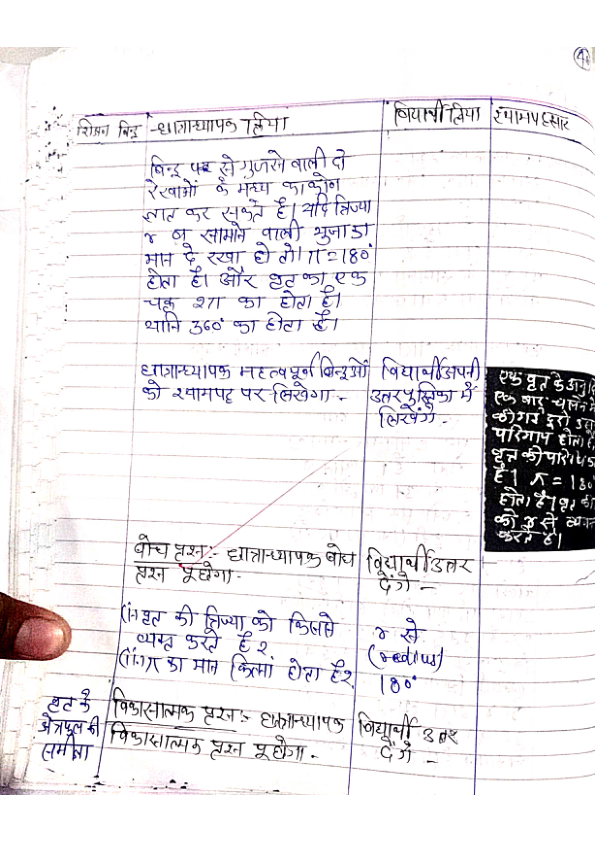 शिक्षण बिन्दु छात्राध्यापक क्रिया विद्यार्थी क्रिया श्यामपट्टसार
बिन्दु पर से गुजरने वाली दो
रेखाओं के मध्य का कोण
ज्ञात कर सकते है। यदि त्रिज्या
r व सामने वाली भुजा का
मान दे रखा हो तो। π = 180°
होता है। और वृत का एक
चक्र 2π का होता है।
यानि 360° का होता है।
छात्राध्यापक महत्वपूर्ण बिन्दुओं
को श्यामपट्ट पर लिखेगा -
विद्यार्थी अपनी
उत्तरपुस्तिका में
लिखेंगे -
एक वृत के अनुदि
एक बार चलने में
की गई दूरी उस
परिमाप होता है
वृत की परि
है। π = 180°
होता है। वृत की
को r से व्यक्त
करते है।
बोध प्रश्न :- छात्राध्यापक बोध
प्रश्न पूछेगा -
विद्यार्थी उत्तर
देंगे -
(i) वृत की त्रिज्या को किससे
व्यक्त करते है ?
r से
(radius)
(ii) π का मान कितना होता है ?
180°
वृत के
क्षेत्रफल की
समीक्षा
विकासात्मक प्रश्न :- छात्राध्यापक
विकासात्मक प्रश्न पूछेगा -
विद्यार्थी उत्तर
देंगे -